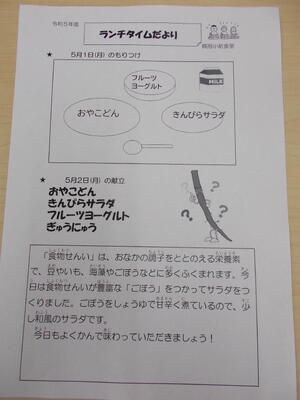 令和5年度
ランチタイムだより
★ 5月1日(月)のもりつけ
フルーツ
ヨーグルト
MILK
おやこどん
きんぴらサラダ
★ 5月2日(月)の献立
おやこどん
きんぴらサラダ
フルーツヨーグルト
ぎゅうにゅう
「食物せんい」は、おなかの調子をととのえる栄養素
で、豆やいも、海藻やごぼうなどに多くふくまれます。今
日は食物せんいが豊富な「ごぼう」をつかってサラダをつ
くりました。ごぼうをしょうゆで甘辛く煮ているので、少
し和風のサラダです。
今日もよくかんで味わっていただきましょう！